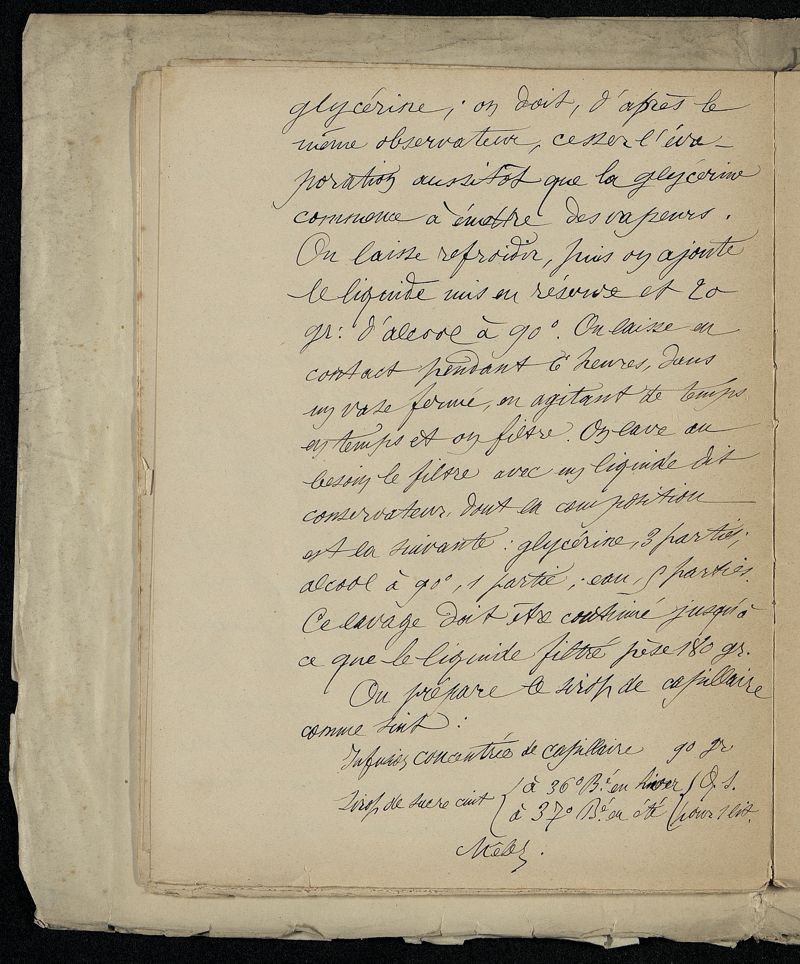 glycérine ; on doit, d'après le
même observateur, cesser l'éva-
poration aussitôt que la glycérine
commence à émettre des vapeurs.
On laisse refroidir, puis on ajoute
le liquide mis en réserve et 20
gr: d'alcool à 90°. On laisse en
contact pendant 6 heures, dans
un vase fermé, en agitant de temps
en temps et on filtre. On lave au
besoin le filtre avec un liquide dit
conservateur, dont la composition
est la suivante : glycérine, 3 parties;
alcool à 90°, 1 partie ; eau, 5 parties.
Ce lavage doit être continué jusqu'à
ce que le liquide filtré pèse 180 gr.
On prépare le sirop de capillaire
comme suit :
Infusion concentrée de capillaire 90 gr
Sirop de sucre cuit { à 36° Bé en hiver } Q. S.
{ à 37° Bé en été } pour 1 lit.
Mêlez.